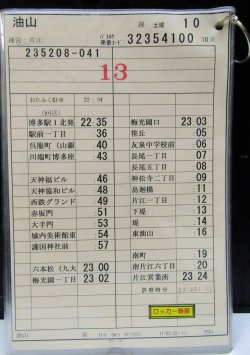 油山 線 土曜 10
運番:片江 バスカウ 乗番コード 32354100 10月
235208-041
13
おたふく駐車 22:34
(回送)
博多駅1北発 22 35
駅前一丁目 :36
呉服町(山銀 :40
川端町博多座 :43
天神福ビル前 :46
天神協和ビル :48
西鉄グランド :49
赤坂門 :51
大手門 :53
城内美術館東 :54
護国神社前 :57
六本松(九大 23 00
梅光園一丁目 23 02
梅光園口 23 03
笹丘 :05
友泉中学校前 :06
長尾一丁目 :07
長尾五丁目 :08
神松寺二丁目 :09
島廻橋 :11
片江一丁目 :12
下堤 :13
堤 :14
東油山 :16
南町 :19
南片江六丁目 :20
片江営業所 23 24
許容時分
ロッカー精算
油山